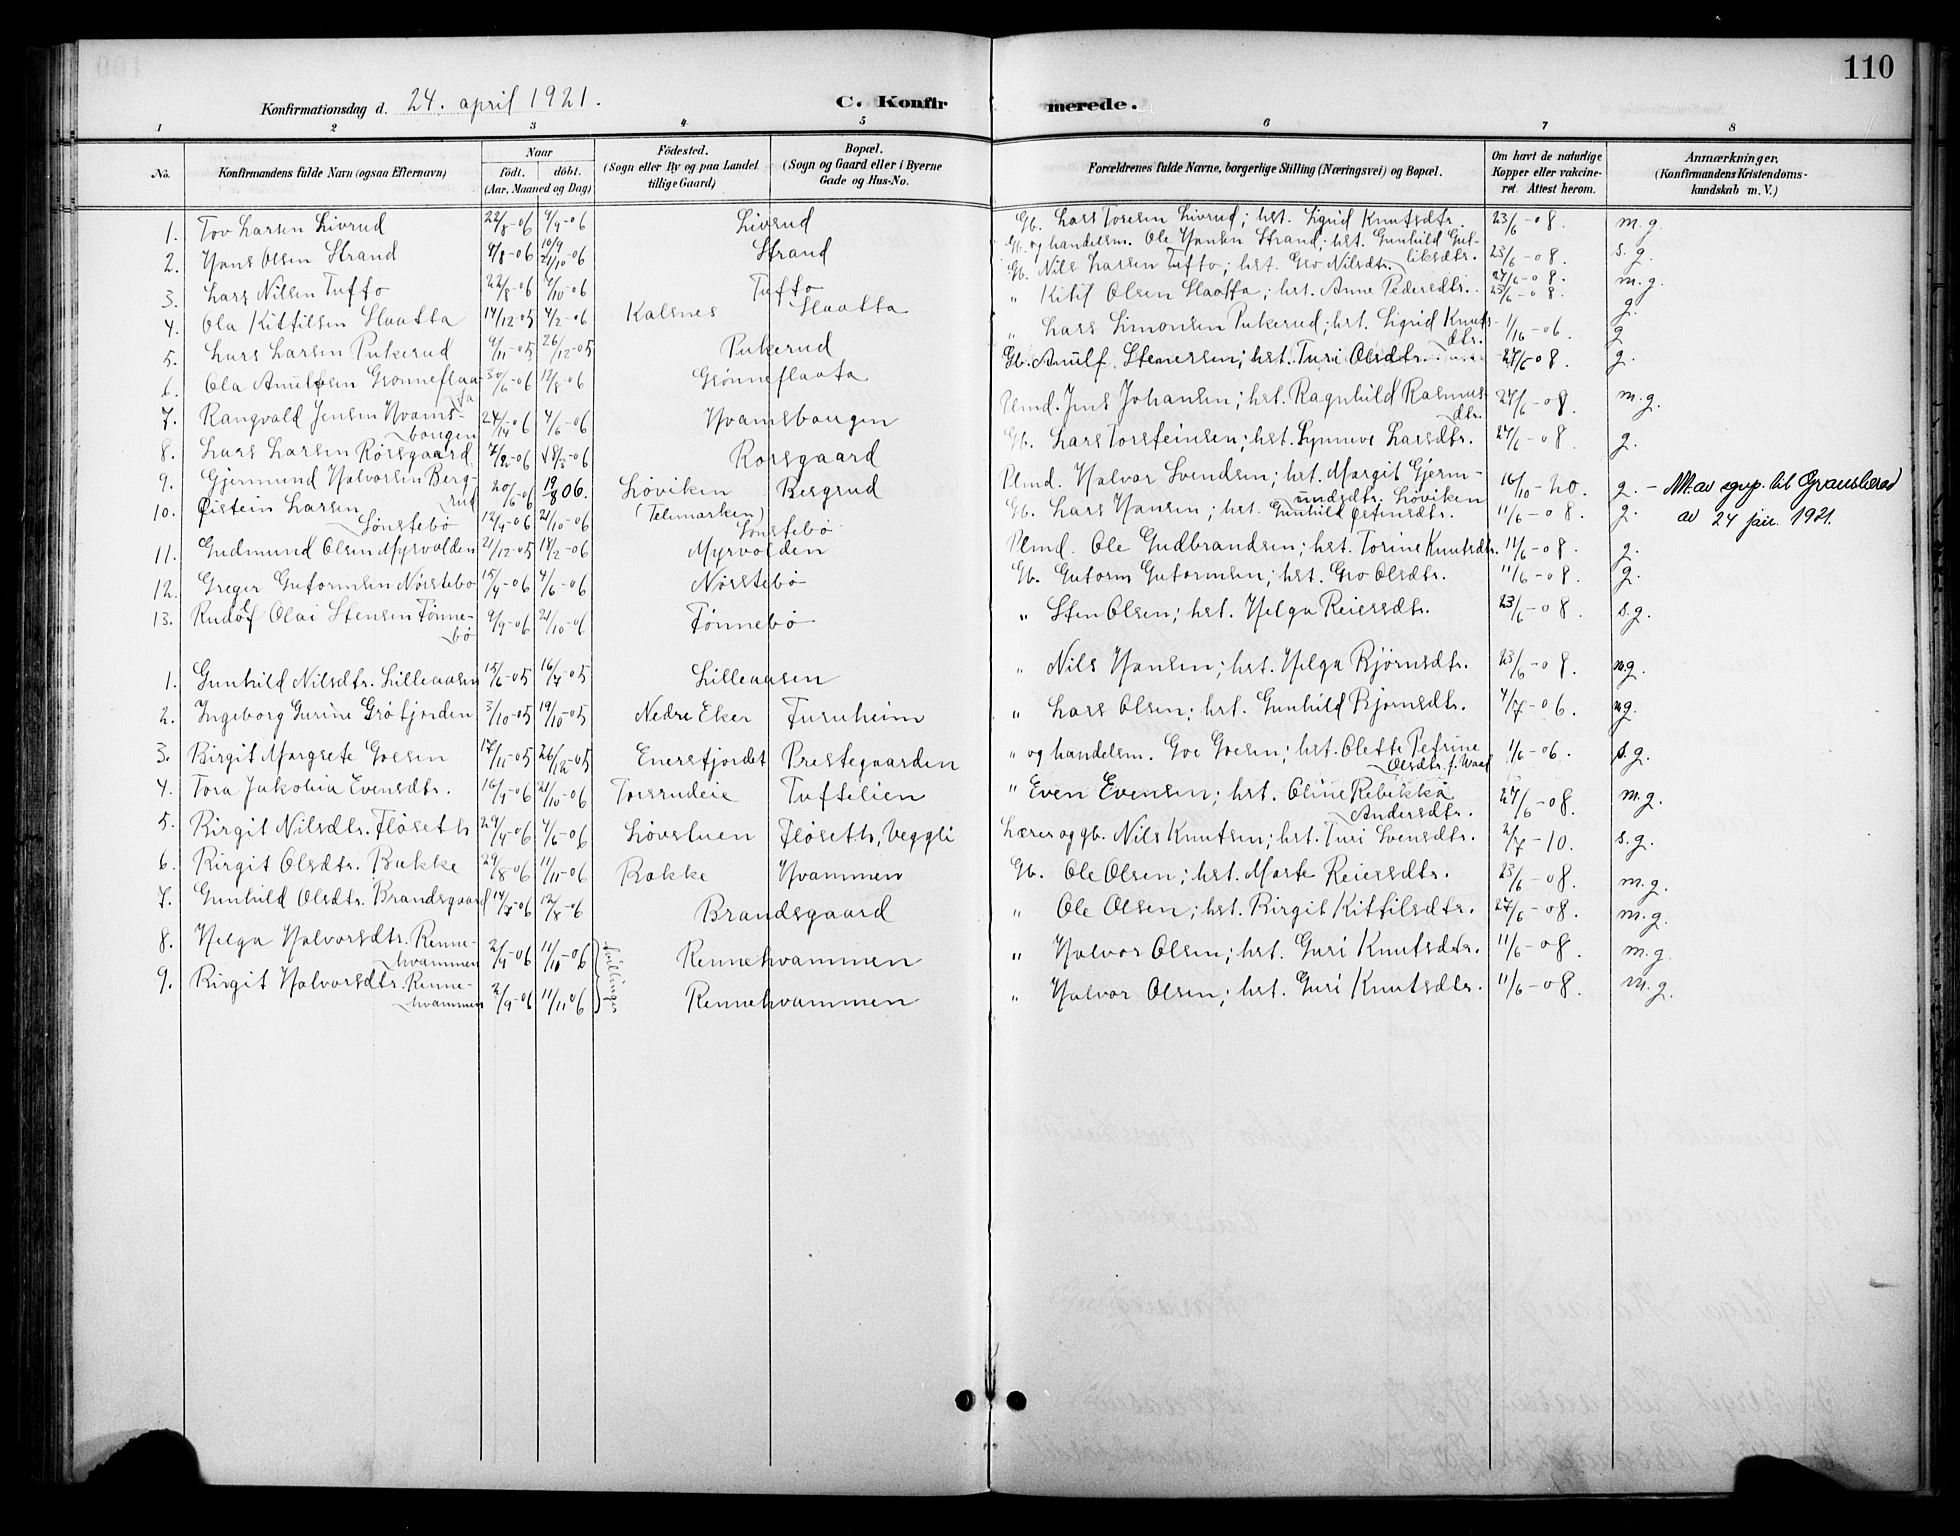 110
Konfirmationsdag d. 24. april 1921.
C. Konfirmerede.
1 2 3 4 5 6 7 8
No.
Konfirmandens fulde Navn (ogsaa Efternavn)
Naar
født. døbt.
(Aar, Maaned og Dag)
Fødested.
(Sogn eller By og paa Landet tillige Gaard)
Bopæl.
(Sogn og Gaard eller i Byerne Gade og Hus-No.
Forældrenes fulde Navne, borgerlige Stilling (Næringsvei) og Bopæl.
Om havt de naturlige Kopper eller vakcineret. Attest herom.
Anmærkninger,
(Konfirmandens Kristendomskundskab m. V.)
1. Tov Larsen Livrud 22/8-06 4/9-06 Livrud Gb. Lars Toresen Livrud; hst. Sigrid Knutsdtr. 23/6-08. m.g.
2. Hans Olsen Strand 4/8-06 Strand Gb. og handelsm. Ole Hansen Strand; hst. Gunhild Gulliksdtr. 23/6-08. s.g.
3. Lars Nilsen Tufto 22/8-06 7/10-06 Tufto Gb. Nils Larsen Tufto; hst. Gro Nilsdtr. 27/6-08. m.g.
4. Ola Kittilsen Slaatta 14/12-05 4/2-06 Kalsnes Slaatta " Kitil Olsen Slaatta; hst. Anne Pedersdtr. 23/6-08. g.
5. Lars Larsen Pukerud 9/11-05 26/12-05 Pukerud " Lars Simonsen Pukerud; hst. Sigrid Knutsdtr. 1/16-06. g
6. Ola Arnulfsen Grønneflaata 30/6-06 12/8-06 Grønneflaata Gb. Arnulf Stenersen; hst. Turi Olsdtr. 27/6-08. g.
7. Rangvald Jensen Hvamsbougen 24/4-06 4/6-06 Hvamsbougen Plmd. Jens Johansen; hst. Ragnhild Rasmusdtr. 27/6-08 m.g.
8. Lars Larsen Rorsgaard 18/3-06 Rorsgaard Gb. Lars Torsteinsen; hst. Synneve Larsdtr. 27/6-08 g.
9. Gjermund Halvorsen Bergrud 20/6-06 19/8 06. Løviken (Telemarken) Bergrud Plmd. Halvor Svendsen; hst. Margit Gjermundsdtr. Løviken 16/10-20. g. - Nt. av sgnp. til Gransherad av 24 jan. 1921.
10. Øistein Larsen Sønstebø 12/9-06 21/10-06 Sønstebø Gb. Lars Hansen; hst. Gunhild Østensdtr. 11/6-08. g.
11. Gudmund Olsen Myrvolden 21/12-05 18/2-06 Myrvolden Plmd. Ole Gudbrandsen; hst. Torine Knutsdtr. 11/6-08. g.
12. Greger Gutormsen Nørstebø 15/4-06 4/6-06 Nørstebø Gb. Gutorm Gutormsen; hst. Gro Olsdtr. 11/6-08. g.
13. Rudolf Olai Stensen Tønnebø 9/9-06 21/10-06 Tønnebø " Sten Olsen; hst. Helga Reiersdtr. 23/6-08. s.g.
1. Gunhild Nilsdtr. Lilleaasen 15/6-05 16/7-05 Lilleaasen " Nils Hansen; hst. Helga Bjørnsdtr. 23/6-08. m.g.
2. Ingeborg Gurine Grøtjorden 3/10-05 19/10-05 Nedre Eker Furuheim " Lars Olsen; hst. Gunhild Bjørnsdtr. 4/7-06. m.g.
3. Birgit Margrete Goesen 17/11-05 26/12-05 Enersfjordet Prestegaarden " og handelsm. Goe Goesen; hst. Olette Petrine Olsdtr. f. Waal 1/6-06. s.g.
4. Tora Jakobia Evensdtr. 16/9-06 21/10-06 Torsrudeie Tuftelien " Even Evensen; hst. Oline Rebikka Andersdtr. 27/6-08. m.g.
5. Birgit Nilsdtr. Fløseth 29/4-06 4/6-06 Løvstuen Fløseth, Veggli Lærer og gb. Nils Knutsen; hst. Turi Svensdtr. 2/7-10. s.g.
6. Birgit Olsdtr. Bakke 29/8-06 11/11-06 Bakke Hvammen Gb. Ole Olsen; hst. Marte Reiersdtr. 23/6-08. m.g.
7. Gunhild Olsdtr. Brandsgaard 14/7-06 12/8-06 Brandsgaard " Ole Olsen; hst. Birgit Kittilsdtr. 27/6-08. m.g.
8. Helga Halvorsdtr. Rennehvammen 2/9-06 11/11-06 Rennehvammen " Halvor Olsen; hst. Guri Knutsdtr. 11/6-08 m.g.
tvillinger
9. Birgit Halvorsdtr. Rennehvammen 2/9-06 11/11 06 Rennehvammen " Halvor Olsen; hst. Guri Knutsdtr. 11/6-08. m.g.